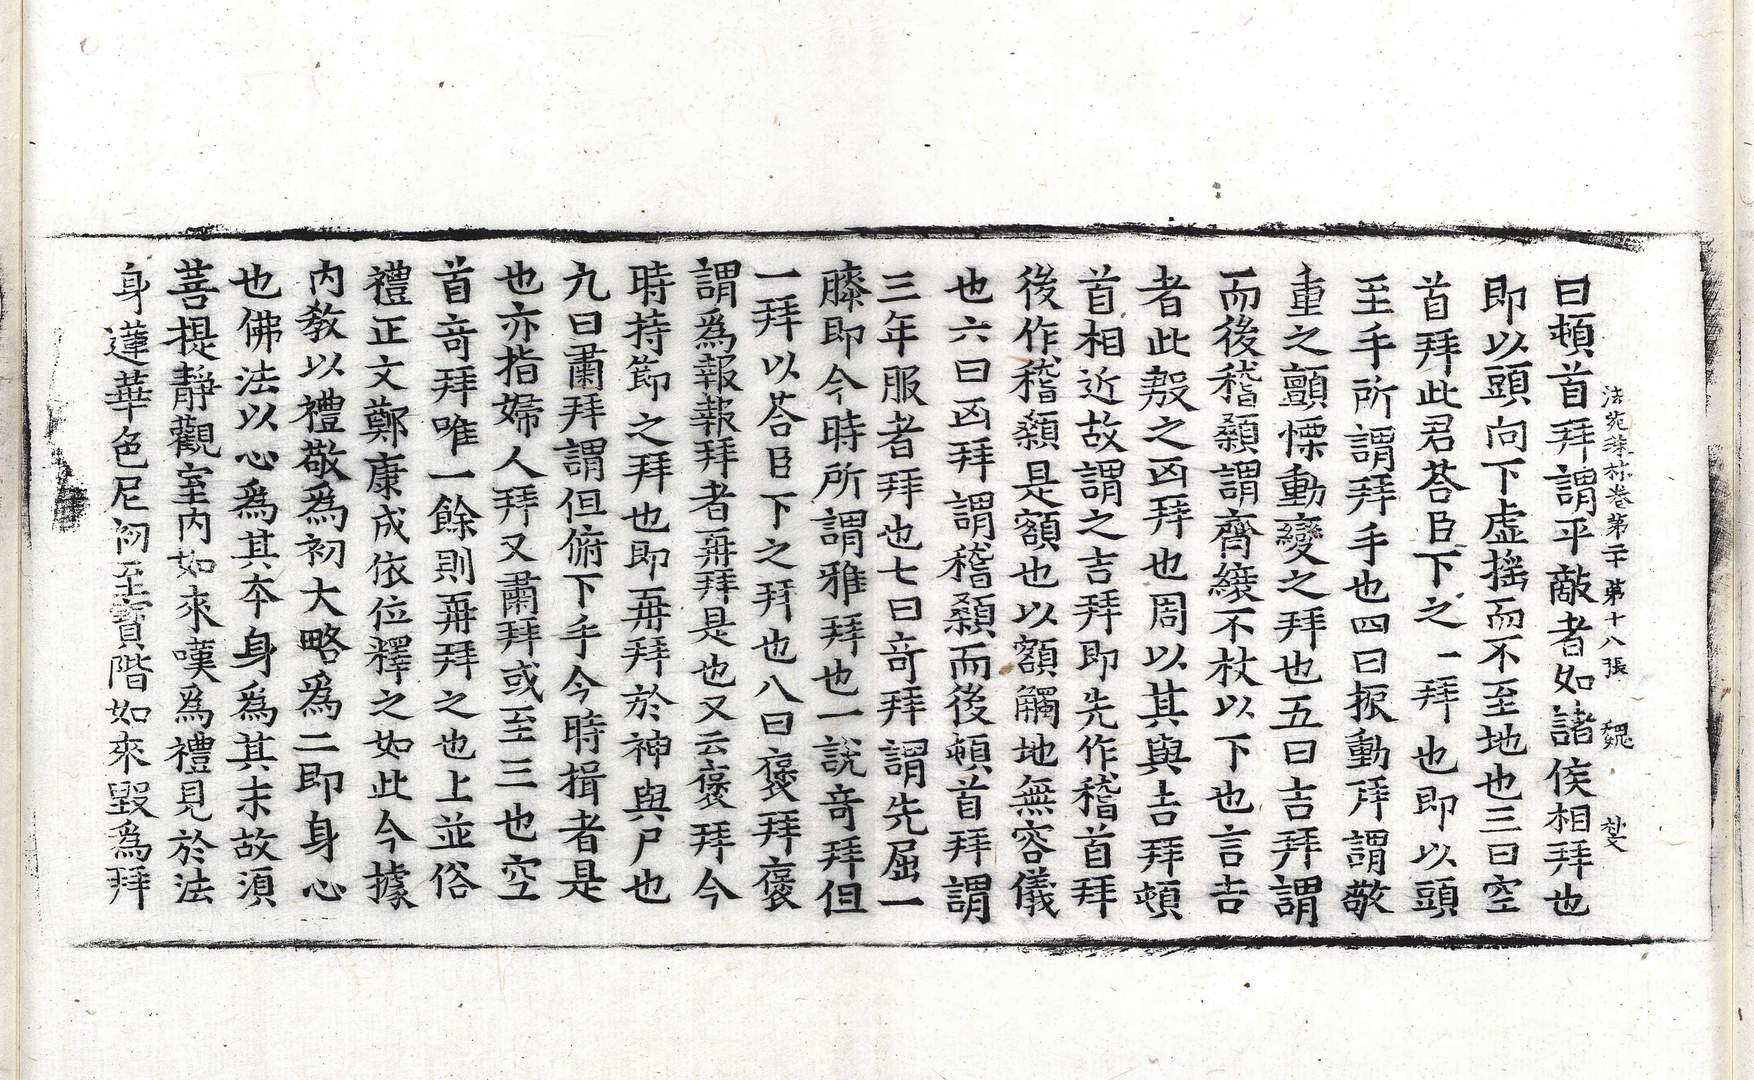 法苑珠林卷第二十 第十八張 魏
曰頓首拜謂平敵者如諸侯相拜也
即以頭向下虛搖而不至地也三曰空
首拜此君荅臣下之一拜也即以頭
至手所謂拜手也四曰振動拜謂敬
重之顫慄動變之拜也五曰吉拜謂
而後稽顙謂齊縗不杖以下也言吉
者此殷之凶拜也周以其與吉拜頓
首相近故謂之吉拜即先作稽首拜
後作稽顙是額也以額觸地無容儀
也六曰凶拜謂稽顙而後頓首拜謂
三年服者拜也七曰竒拜謂先屈一
膝即今時所謂雅拜也一說竒拜但
一拜以荅臣下之拜也八曰襃拜襃
謂爲報報拜者再拜是也又云襃拜今
時持節之拜也即再拜於神與尸也
九曰肅拜謂但俯下手今時揖者是
也亦指婦人拜又肅拜或至三也空
首竒拜唯一餘則再拜之也上並俗
禮正文鄭康成依位釋之如此今據
內教以禮敬爲初大略爲二即身心
也佛法以心爲其夲身爲其末故須
菩提靜觀室內如來嘆爲禮見於法
身蓮華色尼初至寶階如來毀爲拜